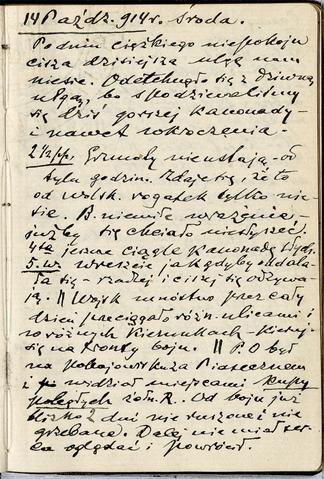 14 Paźdz. 914 r. Środa.
Po dniu ciężkiego niepokoju
cisza dzisiejsza ulgę nam
niesie. Odetchnęło się z dziwną
ulgą, bo spodziewaliśmy
się dziś gorszej kanonady -
i nawet wkroczenia. -
2 1/2 pp. Grzmoty nieustają - od
tylu godzin. Zdaje się, że to
od wolsk. rogatek tylko nie-
sie. B. niemiłe wrażenie,
już by się chciało nie słyszeć.
4ta jeszcze ciągle kanonadę słych.
5. w. wreszcie jak gdyby oddala-
ła się - rzadziej i ciszej się odzywa-
ją. || Wojsk mnóstwo przez cały
dzień przeciągało różn. ulicami i
w różnych kierunkach - kierują
się na fronty boju. || P. O był
na pobojowisku za Piasecznem
i widział miejscami kupy
poległych żołn. R. Od boju już
blisko 2 dni nie ruszone i nie
grzebane. Dalej nie miał ser-
ca oglądać i powrócił.